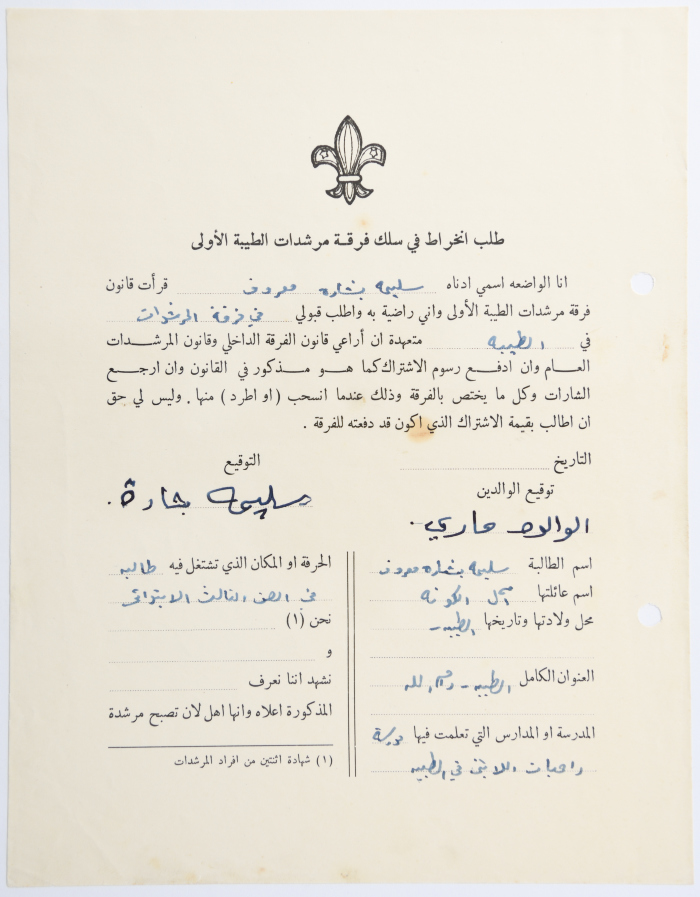 طلب انخراط في سلك فرقة مرشدات الطيبة الأولى
انا الواضعه اسمي ادناه سليمه بشاره معروف قرأت قانون
فرقة مرشدات الطيبة الأولى واني راضية به واطلب قبولي في فرقة المرشدات
في الطيبه متعهدة ان أراعي قانون الفرقة الداخلي وقانون المرشدات
العام وان ادفع رسوم الاشتراك كما هو مذكور في القانون وان ارجع
الشارات وكل ما يختص بالفرقة وذلك عندما انسحب (او اطرد) منها . وليس لي حق
ان اطالب بقيمة الاشتراك الذي اكون قد دفعته للفرقة .
التاريخ
التوقيع
سليمه بشارة .
توقيع الوالدين
الوالده ماري .
اسم الطالبة سليمه بشاره معروف
اسم عائلتها
محل ولادتها وتاريخها الطيبه -
العنوان الكامل الطيبه - رام الله
المدرسة او المدارس التي تعلمت فيها مدرسة
راهبات اللاتين في الطيبه
الحرفة او المكان الذي تشتغل فيه طالبه
في الصف الثالث الابتدائي
نحن (١)
و
نشهد اننا نعرف
المذكورة اعلاه وانها اهل لان تصبح مرشدة
(١) شهادة اثنتين من افراد المرشدات